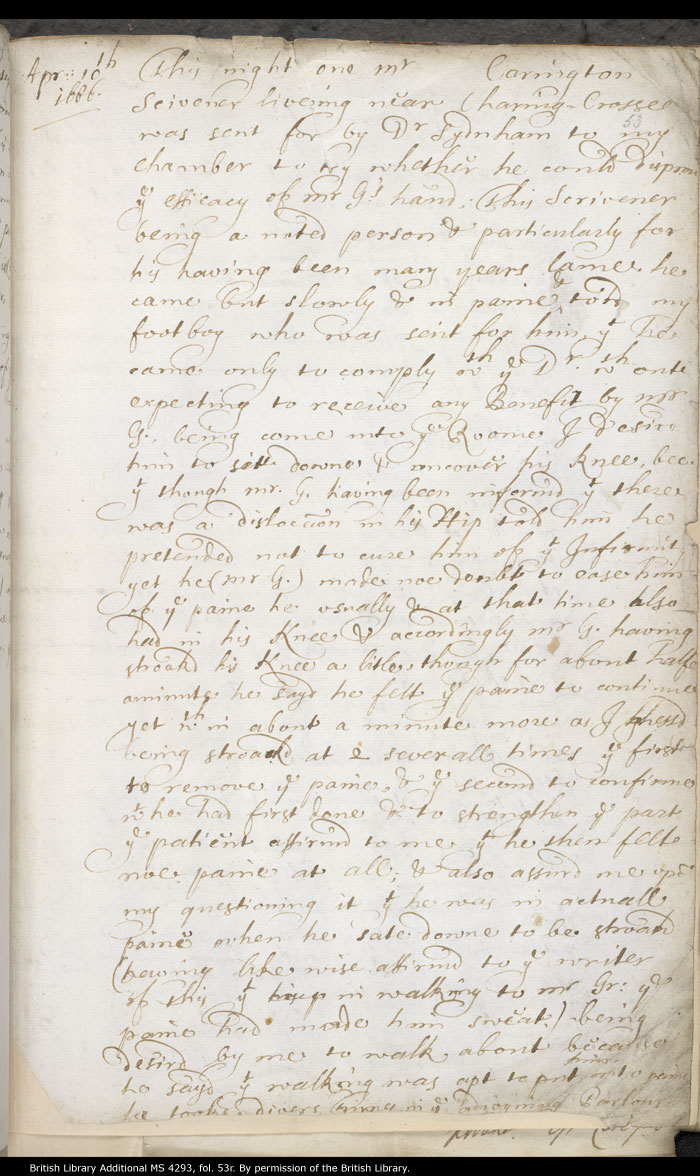 Apr: 10th
1666.
This night one mr Carington
Scivener liveing near Charing-Crosse
53
was sent for by Dr Sydnham to my
chamber to try whether he could
ye efficacy of mr G's hand. This Scrivener
being a noted person & particularly for
his having been many years Lame he
came but slowly & in paine & told my
footboy who was sent for him yt he
came only to comply wth ye Dr. wthout
expecting to receive any Benefit by mr
G. being come into ye Roome I desird
him to sitt downe & uncover his Knee, bec.
yt though mr. G. having been informd yt there
was a dislocation in his Hip told him he
pretended not to cure him of yt Infirmit
yet he (mr G.) made noe doubt to ease him
of ye paine he usually & at that time also
had in his Knee & accordingly mr G. having
stroakd his Knee a litle though for about halfe
a minute he sayd he felt ye paine to continue
yet wthin about a minute more as I
being stroakd at 2 severall times ye first
to remove ye paine, & ye second to confirme
wt he had first done & to strengthen ye part
ye patient affirmd to me yt he then felt
noe paine at all; & also assurd me upō
my questioning it yt he was in actuall
paine when he sate downe to be stroakd
(haveing like wise affirmd to ye writer
of this yt in walking to mr Gr: ye
paine had made him sweat.) being
desird by me to walk about because
he sayd yt walking was apt to put him into paine
he tooke divers turnes in ye adjoyning Parlour
British Library Additional MS 4293, fol. 53r. By permission of the British Library.